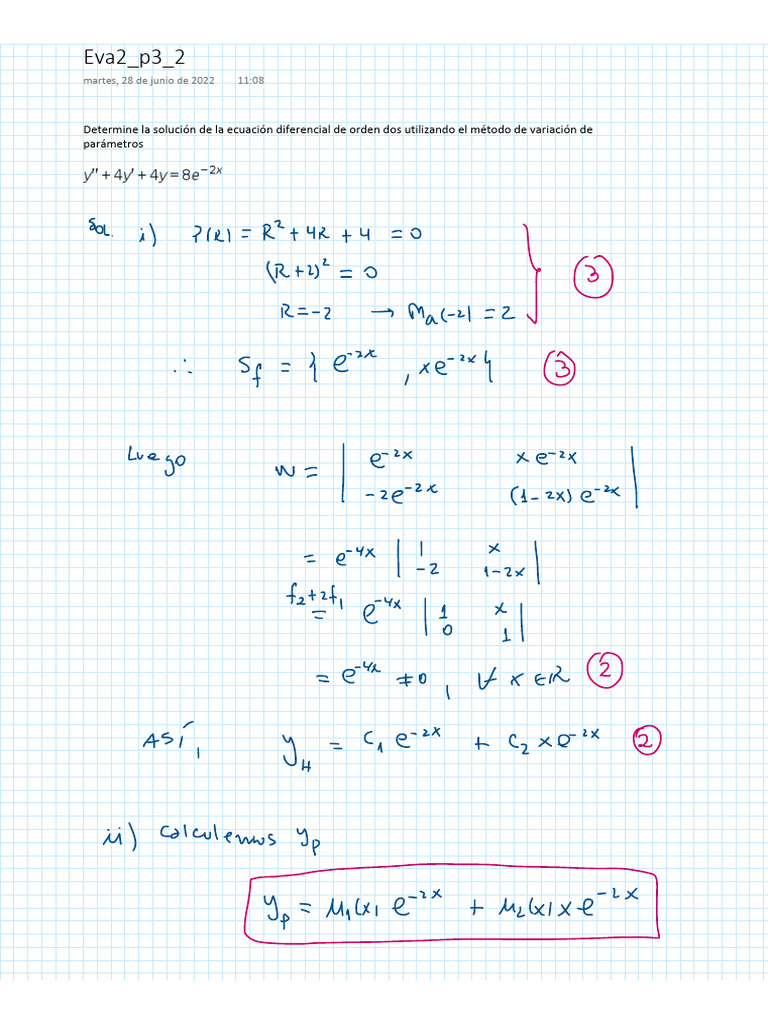 Eva2_p3_2
martes, 28 de junio de 2022 11:08
Determine la solución de la ecuación diferencial de orden dos utilizando el método de variación de
parámetros
y'' + 4y' + 4y = 8e^{-2x}
Sol. i) P(R) = R² + 4R + 4 = 0
(R+2)² = 0
R = -2 → Ma(-2) = 2
③
∴ S_f = { e^{-2x} , xe^{-2x} } ③
Luego W = | e^{-2x} x e^{-2x} |
| -2e^{-2x} (1-2x) e^{-2x} |
= e^{-4x} | 1 x |
| -2 1-2x |
f₂+2f₁
= e^{-4x} | 1 x |
| 0 1 |
= e^{-4x} ≠ 0 , ∀ x ∈ ℝ ②
ASÍ, y_H = C₁ e^{-2x} + C₂ x e^{-2x} ②
ii) Calculemos y_p
y_p = μ₁(x) e^{-2x} + μ₂(x) x e^{-2x}